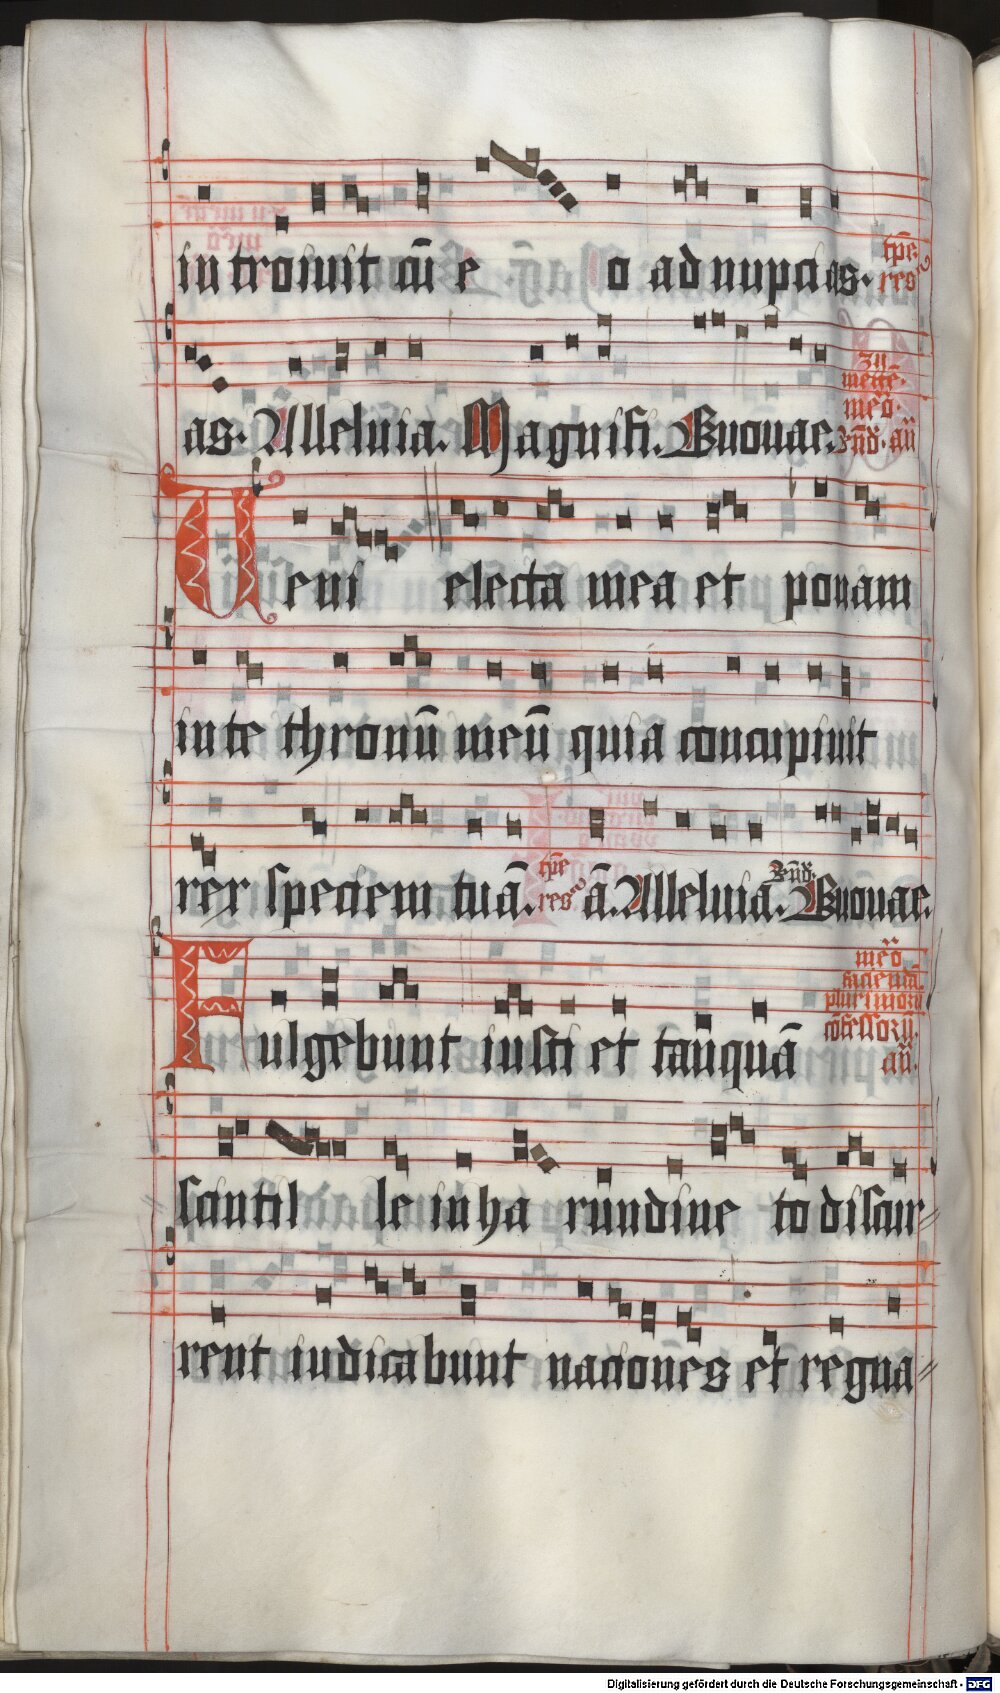 introiuit cū eo ad nupcias. tp̄e
res
as. Alleluia. Magnifi. Euouae.
Ueni electa mea et ponam
in te thronū meū quia concupiuit
rex speciem tuā. tp̄e res ā. Alleluia. Euouae.
Fulgebunt iusti et tanquā
scintille in harundine to discur
rent iudicabunt naciones et regna
Digitalisierung gefördert durch die Deutsche Forschungsgemeinschaft - DFG